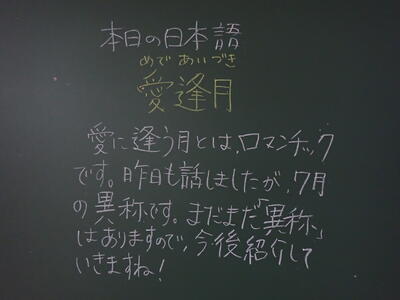 本日の日本語
めで あいづき
愛逢月
愛に逢う月とは、ロマンチック
です。昨日も話しましたが、7月
の異称です。まだまだ「異称」
はありますので、今後紹介して
いきますね!